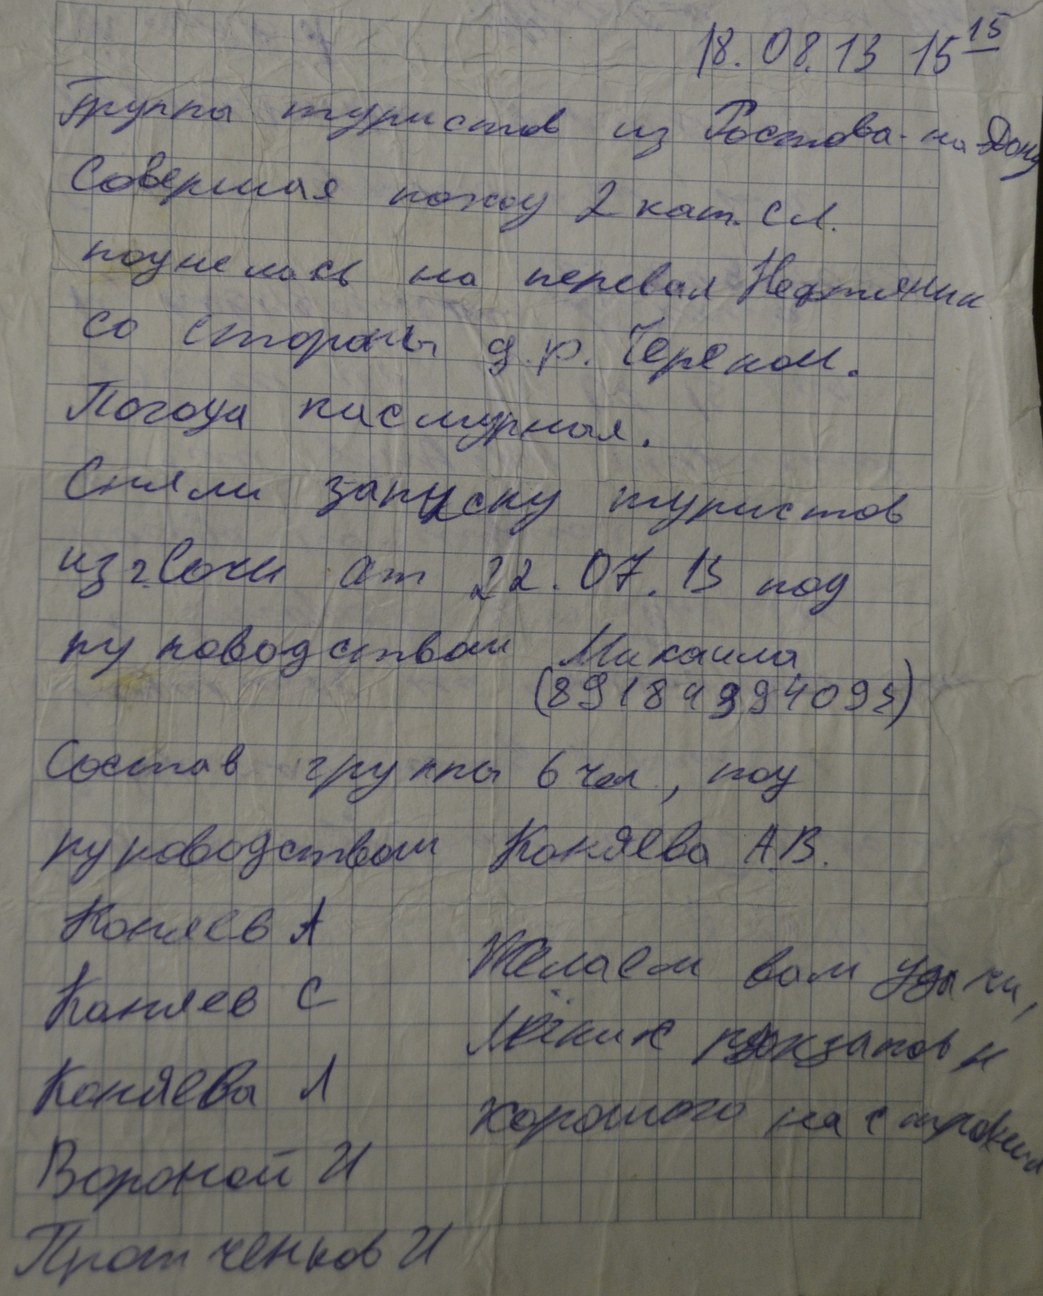 18.08.13 15 15
Группы туристов из Ростова-на-Дону
Совершая поход 2 кат. сл.
поднелась на перевал Нефтяник
со стороны д.р. Черяком.
Погода пасмурная.
Сняли запуску туристов
из г. Сочи от 22.07.13 под
руководством Михаила
(89184994093)
Состав группы 6 чел, под
руководством Коняева А.В.
Коняев А
Коняев С
Коняева Л
Вороной И
Протченков И
Желаем вам удачи,
лёгких рюкзаков и
хорошого настроения